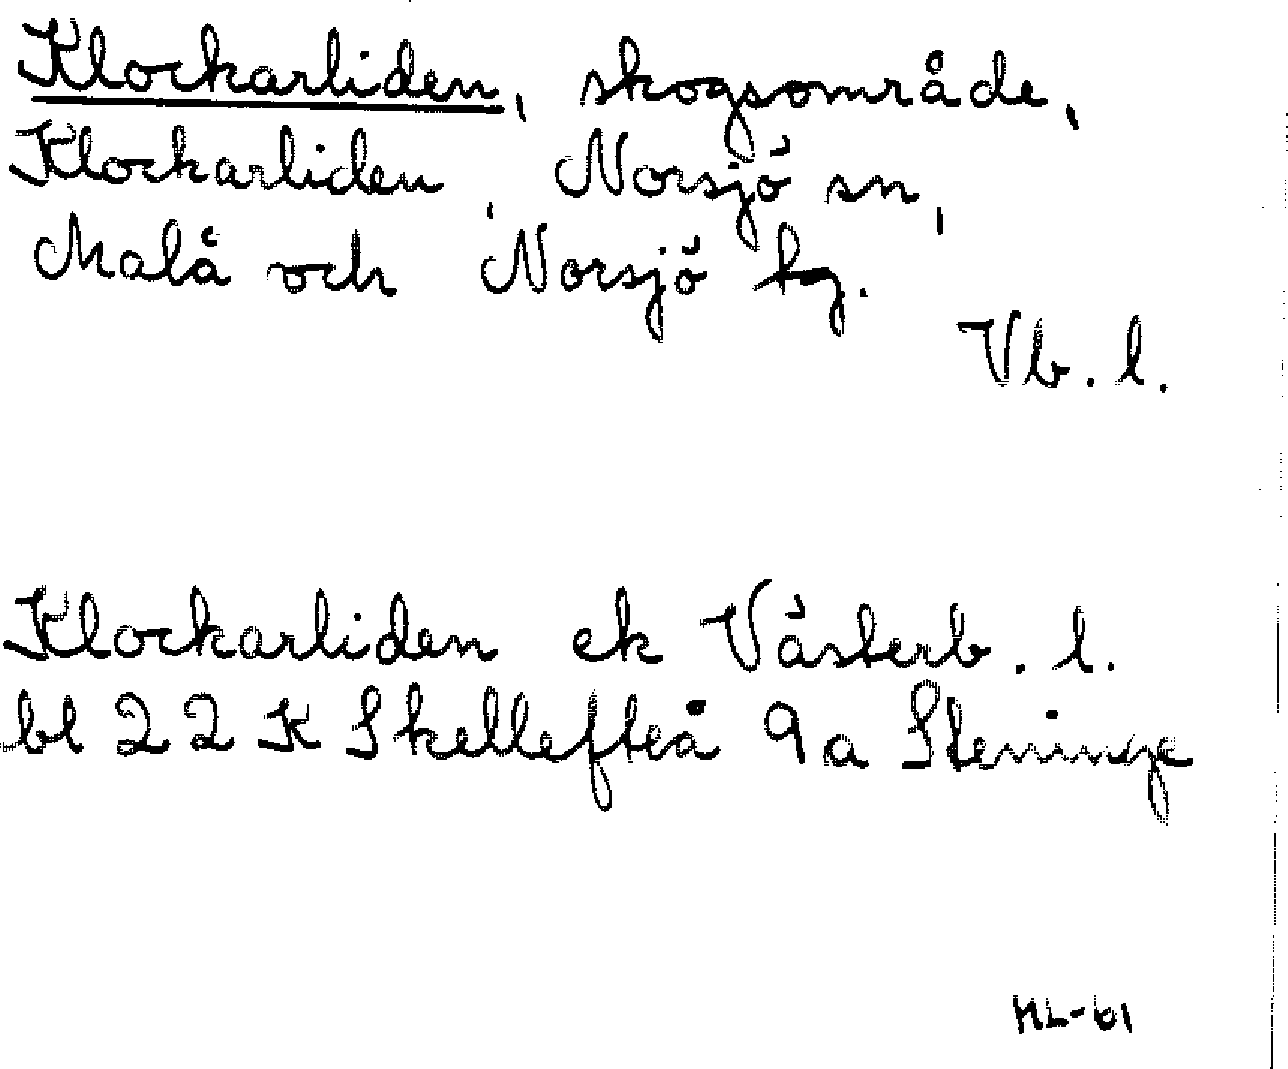 Klockarliden, skogsområde,
Klockarliden, Norsjö sn,
Malå och Norsjö tg.
Vb. l.
Klockarliden ek Västerb. l.
bl 22 K Skellefteå 9a Steninge
ML-61